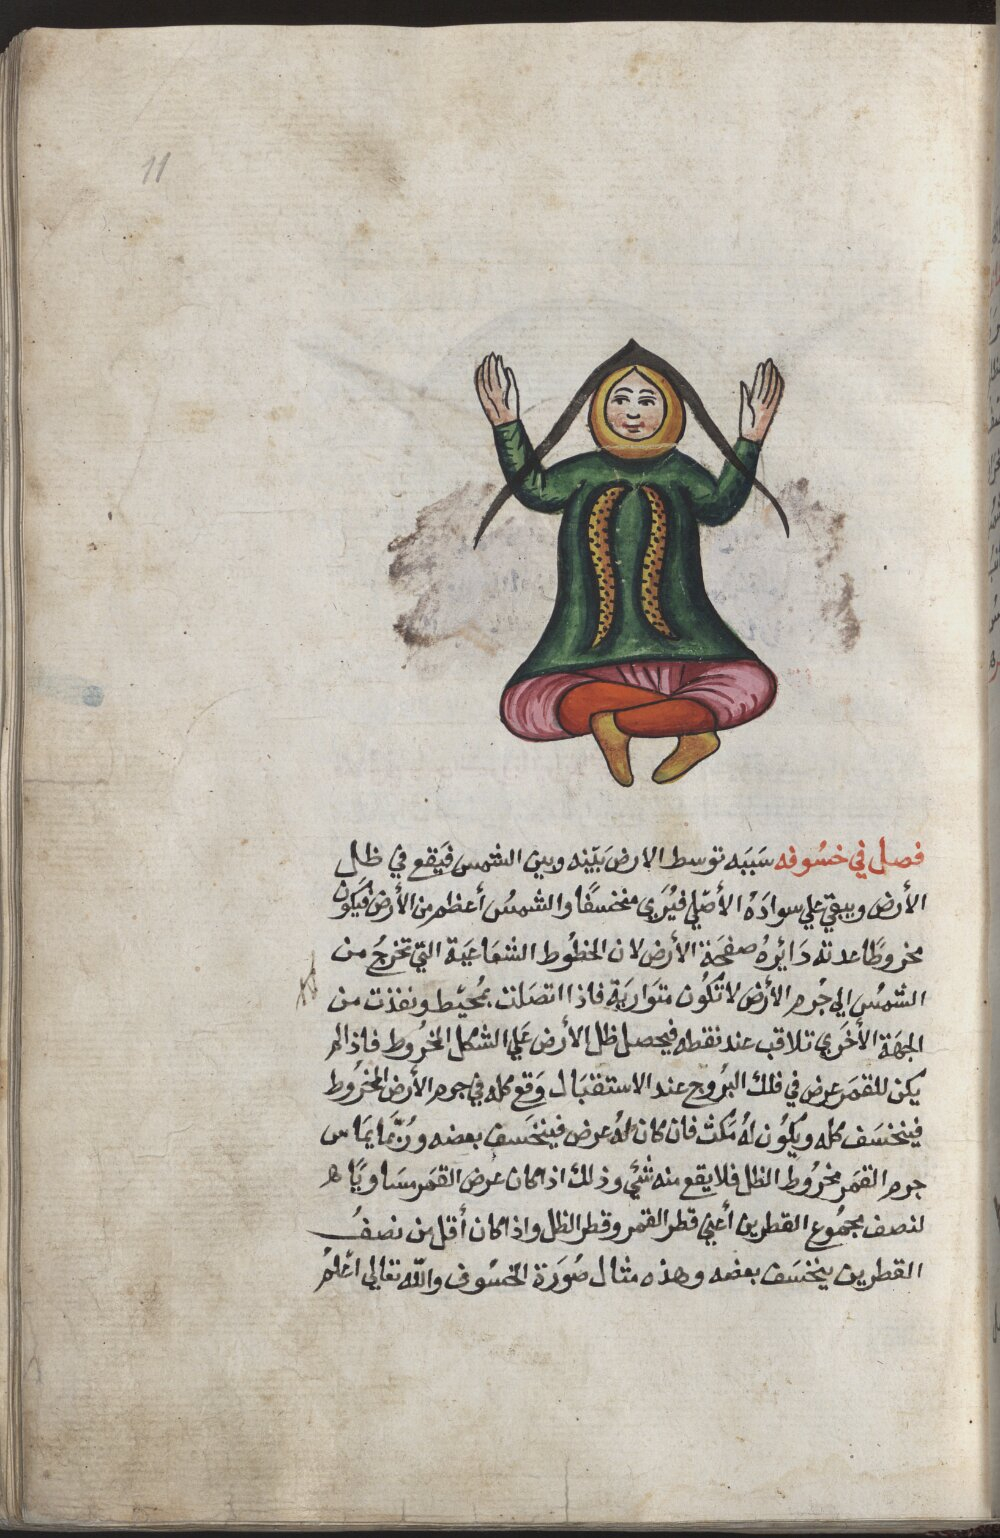 11
فصل في خسُوفه سَبَبَه توسط الارض بَيْنه وبين الشمس فَيَقع في ظل
الأرض ويبقي علي سوادهُ الأصّلي فيُرَي منخسفًا والشمسُ أعظم من الأرض فَيكَون
مخروطًا عدته دَائِرهُ صفحَة الأرض لان الخظُوط الشعَاعيَة التي تخرجُ من
الشمسُ الي جُرم الأرض لا تكُون متوَاريَة فاذا اتصَلت بمُحيَط ونفذت من
الجهَة الأخرَي تلاقب عند نقطه فيحصل ظل الأرض عَلي الشكل المخرُوط فاذالم
يكن للقمَر عرض في فلك البُروج عند الاستقبَال وَقع كله في جرم الأرض المخرُوط
فينخسَف كله ويكُون لهُ مَكث فان كان لهُ عرض فينخَسَف بعضه ورُبَّما يمَاس
جرم القمَر مخرُوط الظل فلا يقع منه شَئي وذلك اذا كان عرض القمَر مسَاويًا
لنصف مجمُوع القطرين أعني قطر القمر وقطر الظل واذا كان أقل من نصفُ
القطرين ينخسَف بعضه وهذه مثال صُورَة الخسُوف والله تعالي أعلمُ